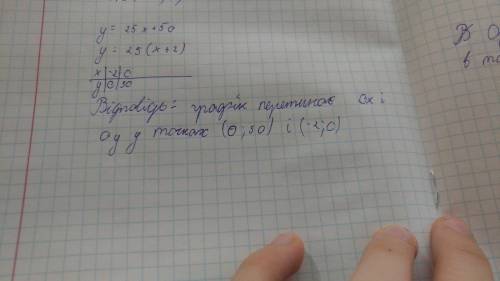 y = 25x+50
y = 25(x+2)
x|-2|0
y|0|50
Відповідь: графік перетинає ox і
oy у точках (0;50) і (-2;0)
В
в то